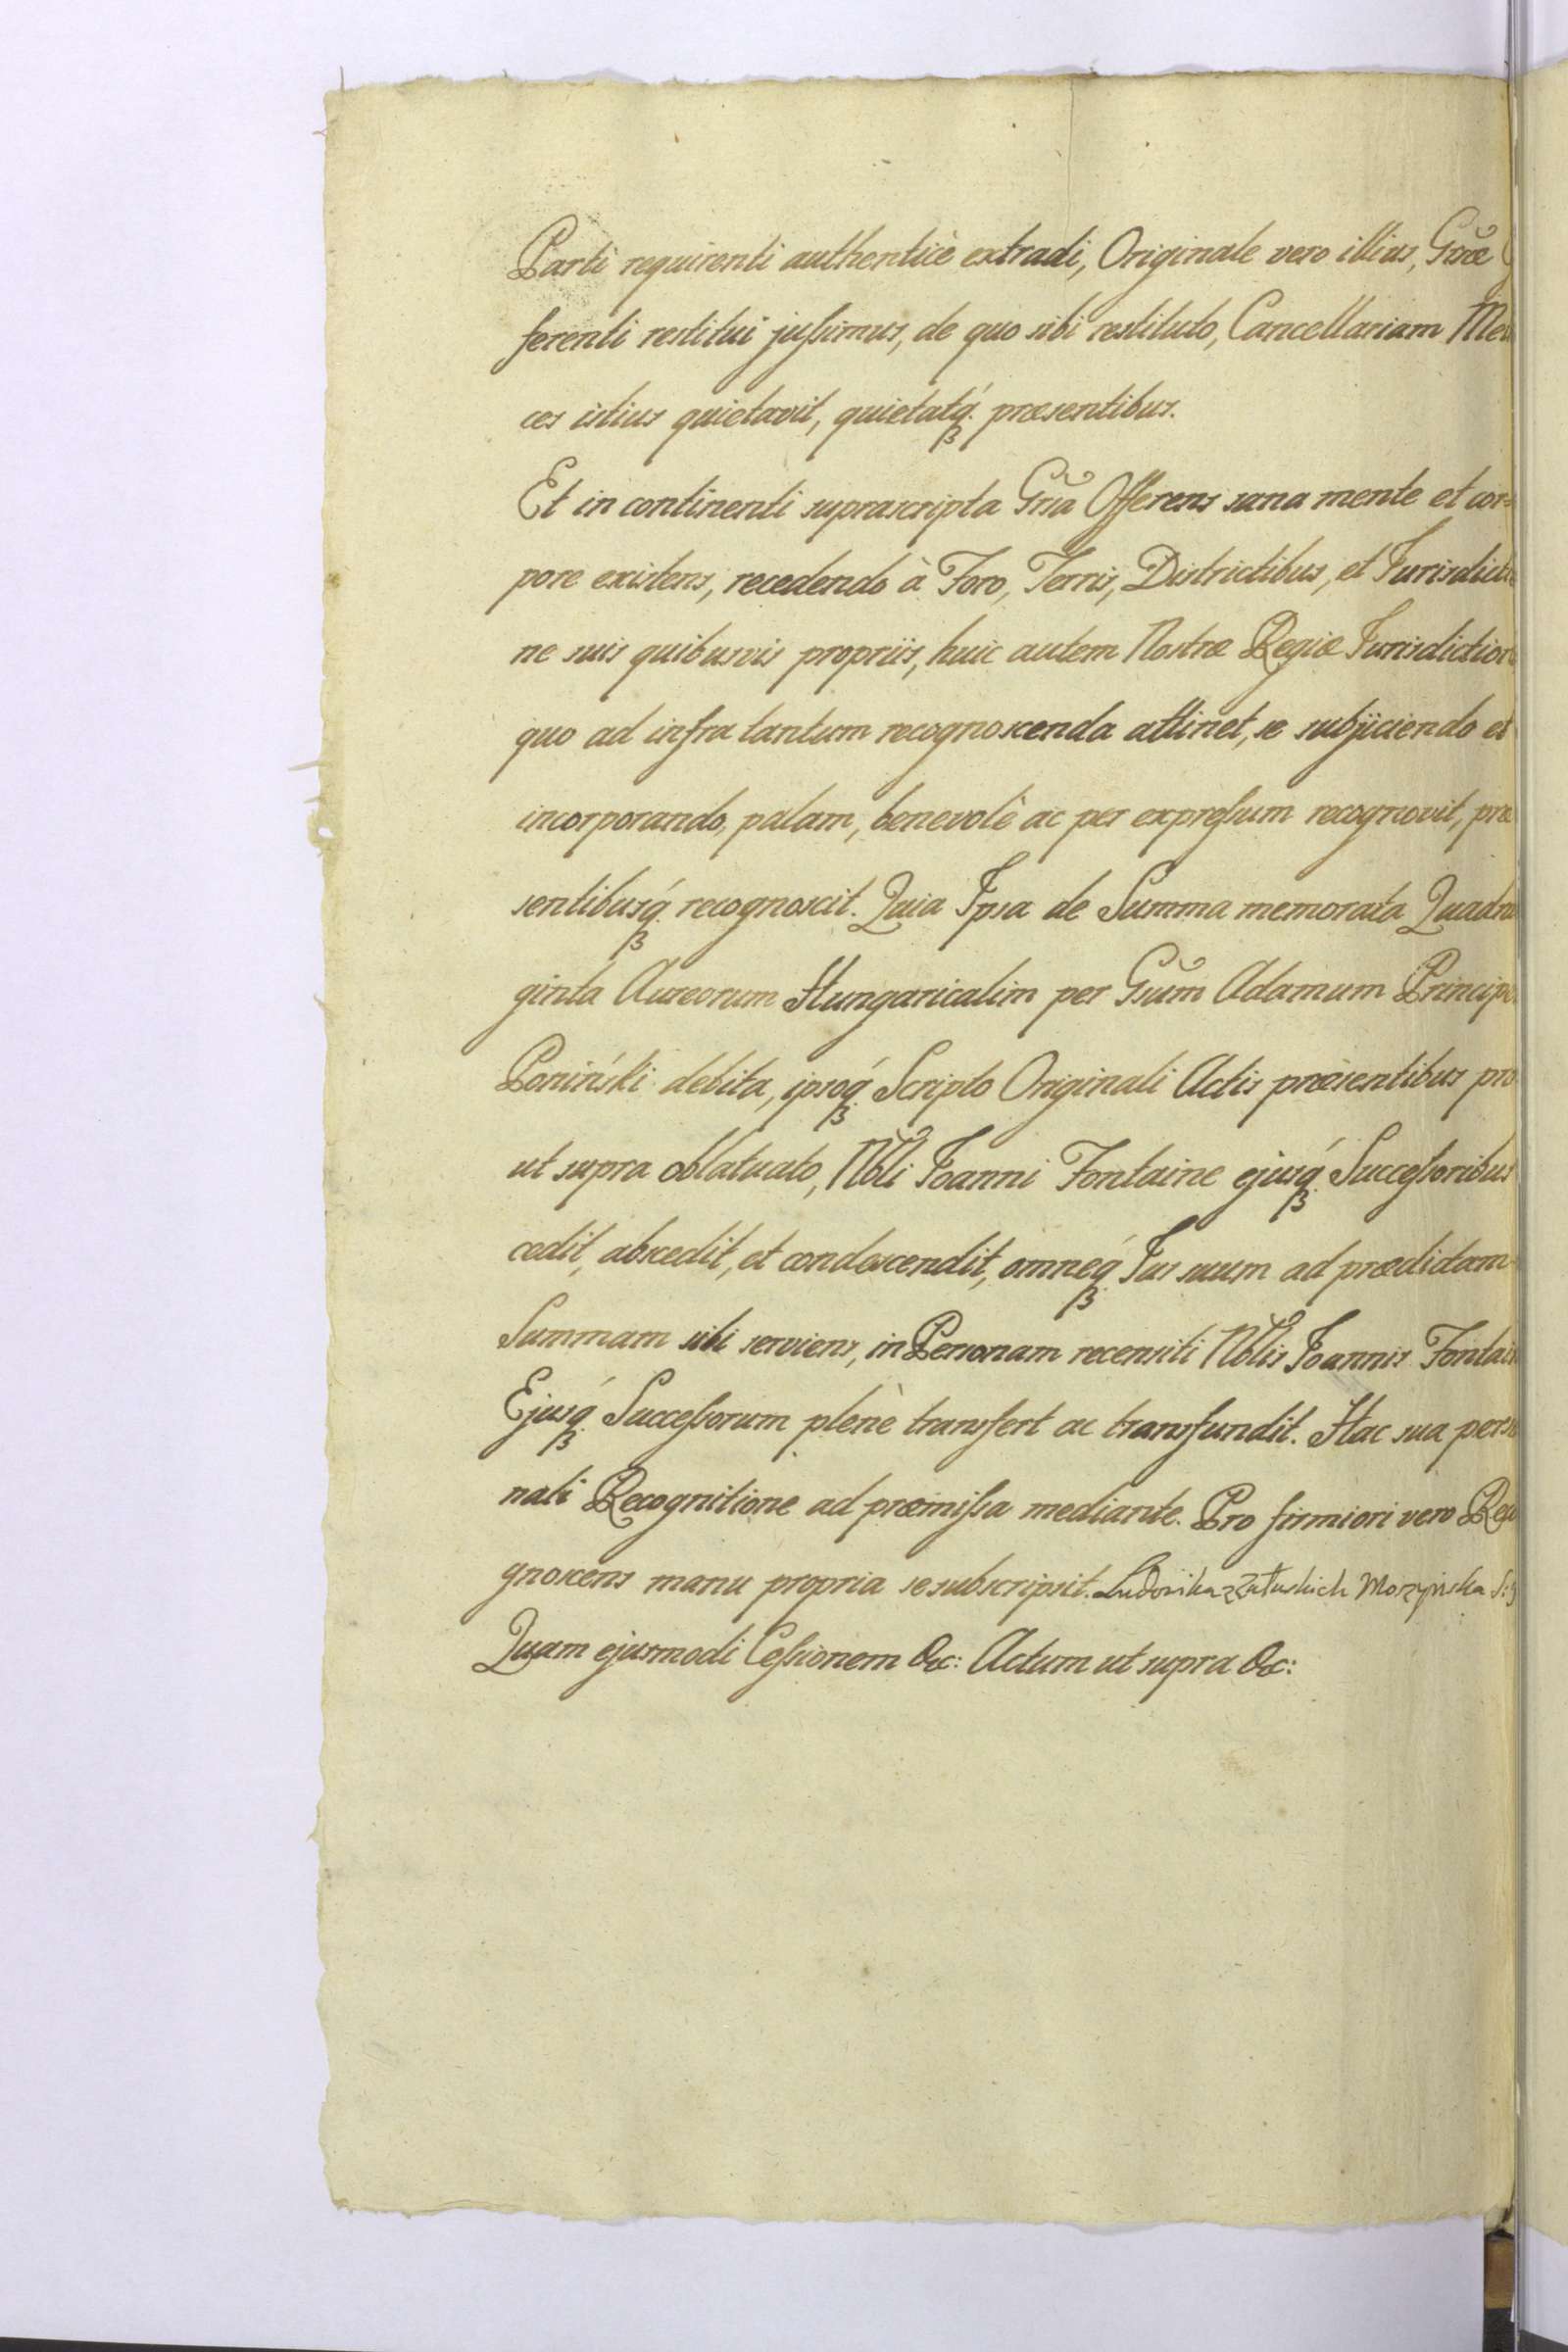 Parti requirenti authenticè extradi, Originale vero illius, Gsæ
ferenti restitui jussimus, de quo sibi restituto, Cancellariam
ces istius quietavit, quietatq́ꝫ præsentibus.
Et in continenti suprascripta Gsa Offerens sana mente et cor=
pore existens, recedendo à Foro, Terris, Districtibus, et Jurisdictio
ne suis quibusvis propriis, huic autem Nostræ Regiæ Jurisdiction
quo ad infra tantum recognoscenda attinet, se subjiciendo et
incorporando, palam, benevolè ac per expressum recognovit, præ
sentibusq́ꝫ recognoscit. Quia Ipsa de Summa memorata Quadra
ginta Aureorum Hungaricalim per Gsum Adamum Principe
Poniński debita, ipsoq́ꝫ Scripto Originali Actis præsentibus pro
ut supra oblatuato, Nbli Joanni Fontaine ejusq́ꝫ Successoribus
cedit, abscedit, et condescendit, omneq́ꝫ Jus suum ad prædictam
Summam sibi serviens, in Personam recensiti Nblis Joannis Fontain
Ejusq́ꝫ Successorum plenè transfert ac transfundit. Hac sua perso
nali Recognitione ad præmissa mediante. Pro firmiori vero Reco
gnoscens manu propria se subscripsit. Ludovika z Załuskich Moszyńska
Quam ejusmodi Cessionem &c: Actum ut supra &c: